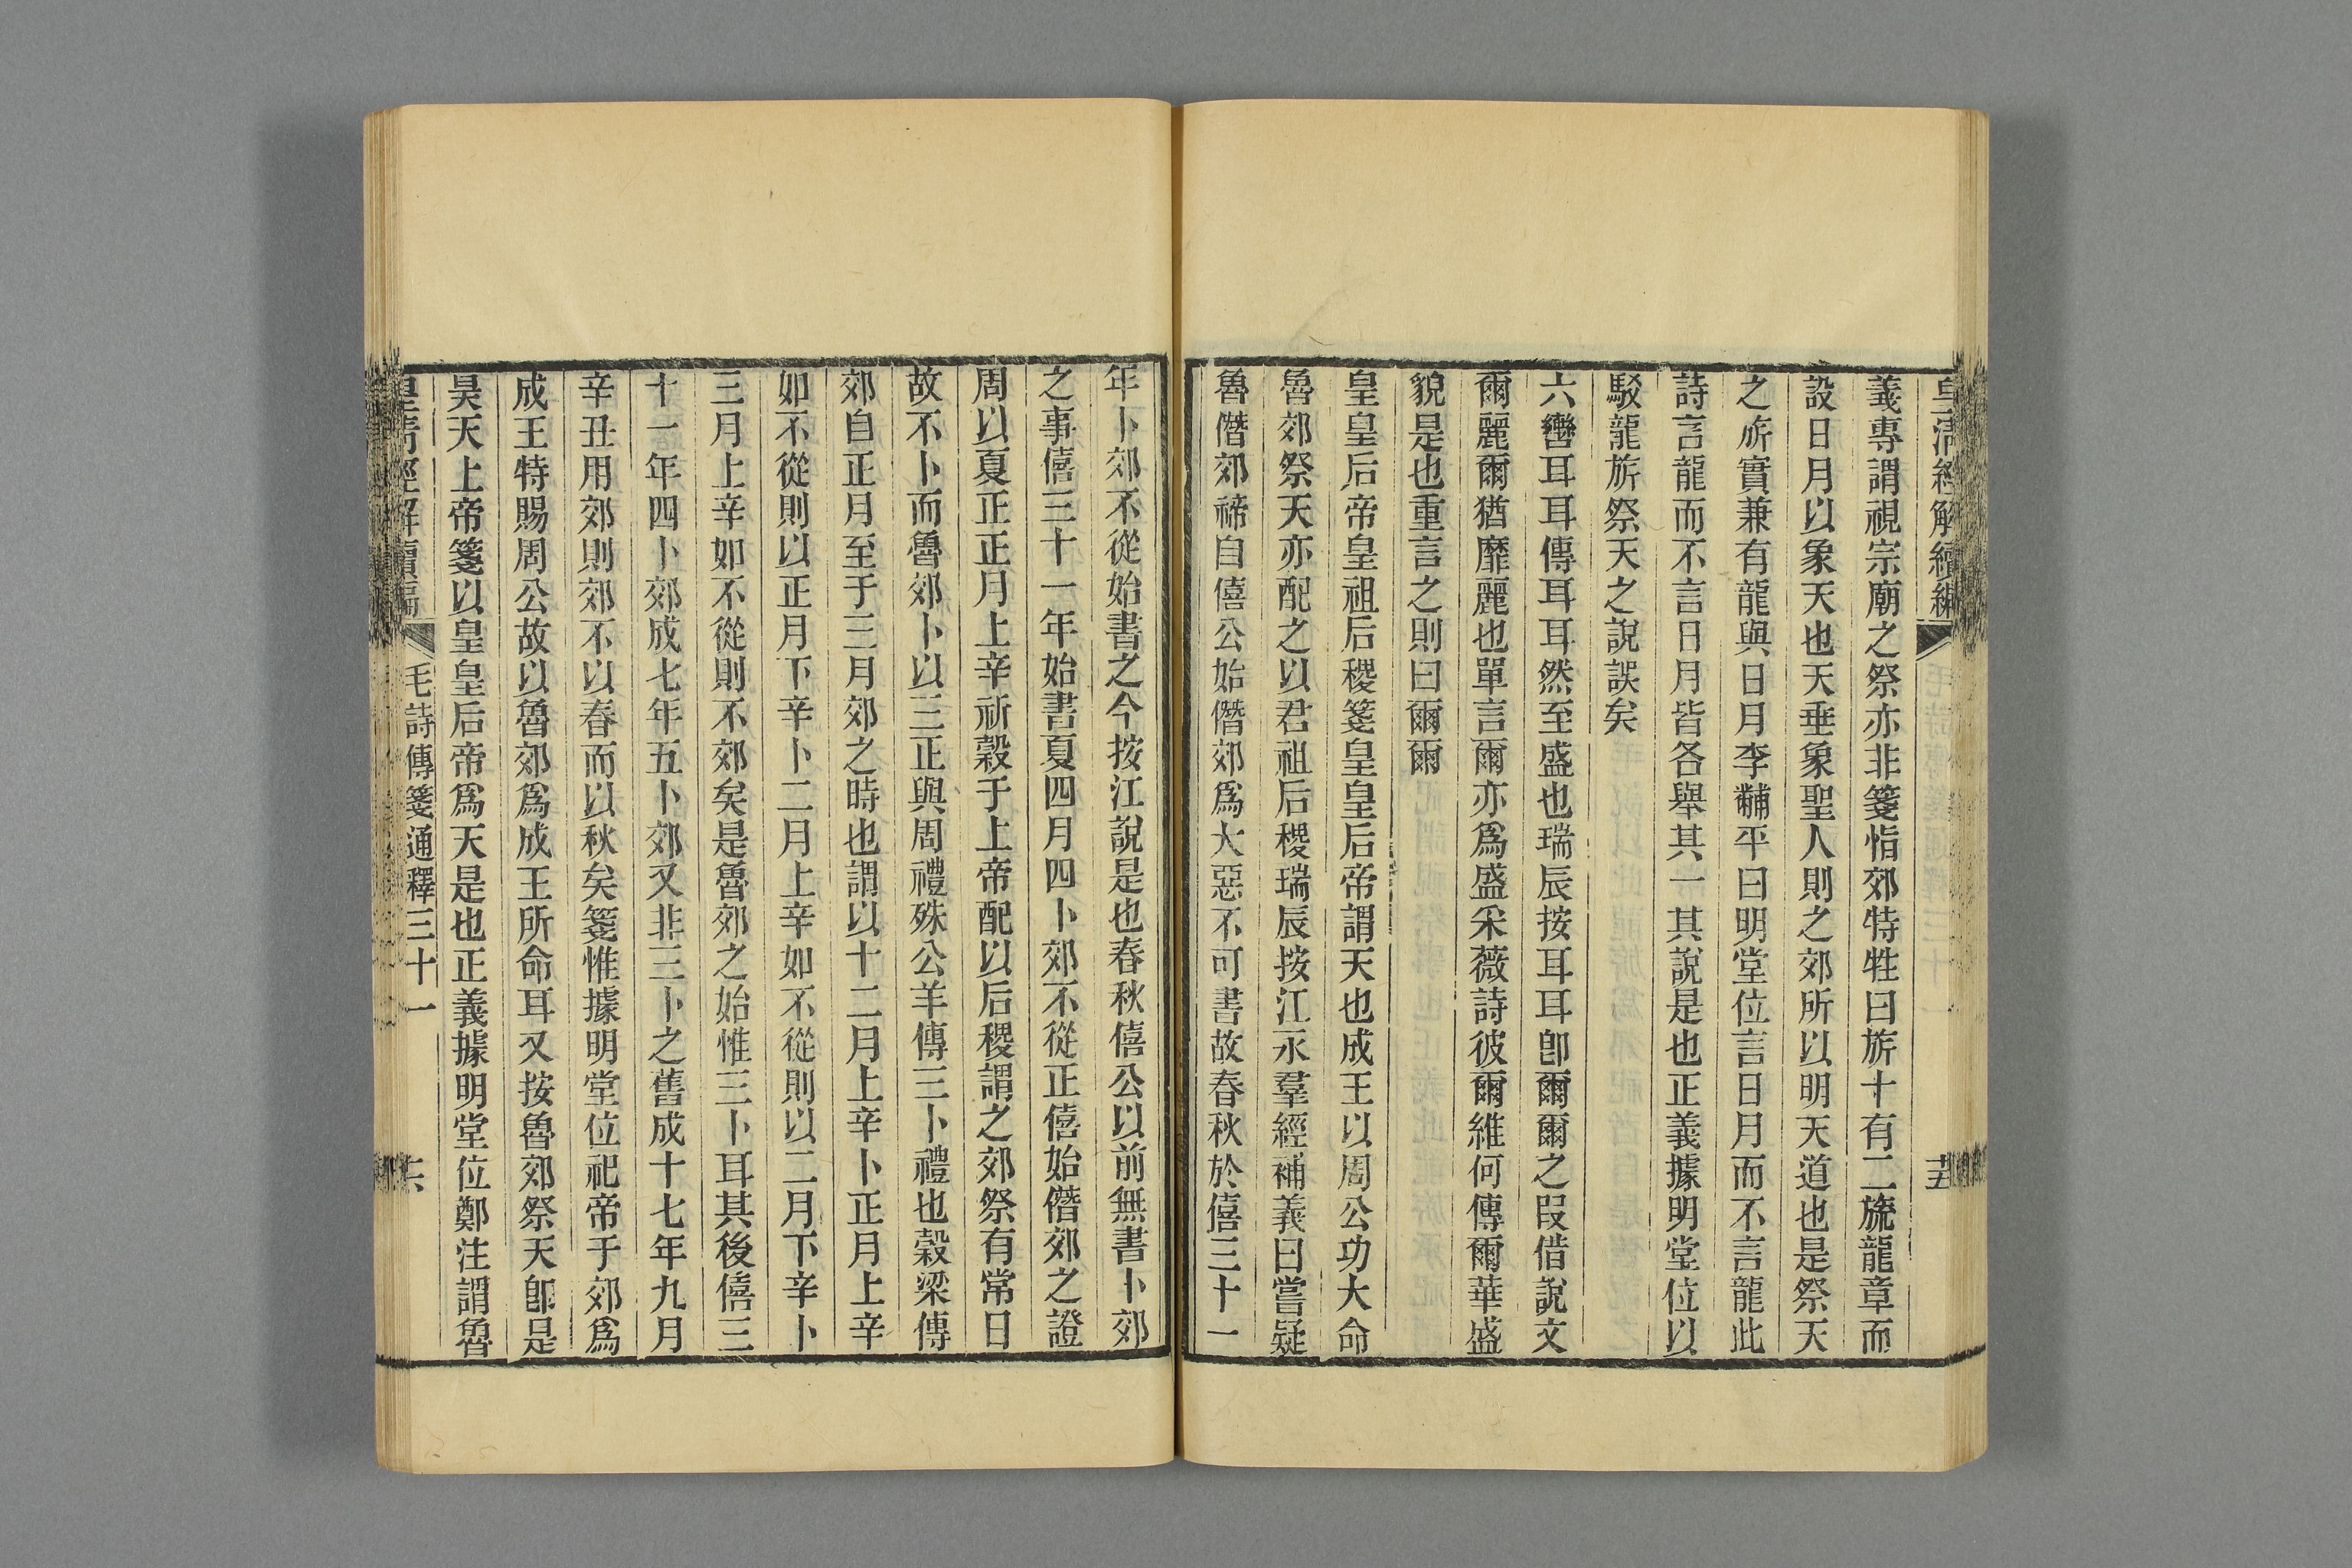 皇清經解續編
十五
義專謂視宗廟之祭亦非箋恉郊特牲曰旂十有二旒龍章而
設日月以象天也天垂象聖人則之郊所以明天道也是祭天
之旂實兼有龍與日月李黼平曰明堂位言日月而不言龍此
詩言龍而不言日月皆各舉其一其說是也正義據明堂位以
駁龍旂祭天之說誤矣
六轡耳耳傳耳耳然至盛也瑞辰按耳耳卽爾爾之叚借說文
爾麗爾猶靡麗也單言爾亦爲盛采薇詩彼爾維何傳爾華盛
貌是也重言之則曰爾爾
皇皇后帝皇祖后稷箋皇皇后帝謂天也成王以周公功大命
魯郊祭天亦配之以君祖后稷瑞辰按江永羣經補義曰嘗疑
魯僭郊禘自僖公始僭郊爲大惡不可書故春秋於僖三十一
年卜郊不從始書之今按江說是也春秋僖公以前無書卜郊
之事僖三十一年始書夏四月四卜郊不從正僖始僭郊之證
周以夏正正月上辛祈穀于上帝配以后稷謂之郊祭有常日
故不卜而魯郊卜以三正與周禮殊公羊傳三卜禮也穀梁傳
郊自正月至于三月郊之時也謂以十二月上辛卜正月上辛
如不從則以正月下辛卜二月上辛如不從則以二月下辛卜
三月上辛如不從則不郊矣是魯郊之始惟三卜耳其後僖三
十一年四卜郊成七年五卜郊又非三卜之舊成十七年九月
辛丑用郊則郊不以春而以秋矣箋惟據明堂位祀帝于郊爲
成王特賜周公故以魯郊爲成王所命耳又按魯郊祭天卽是
昊天上帝箋以皇皇后帝爲天是也正義據明堂位鄭注謂魯
皇清經解續編
毛詩傳箋通釋三十一
十六